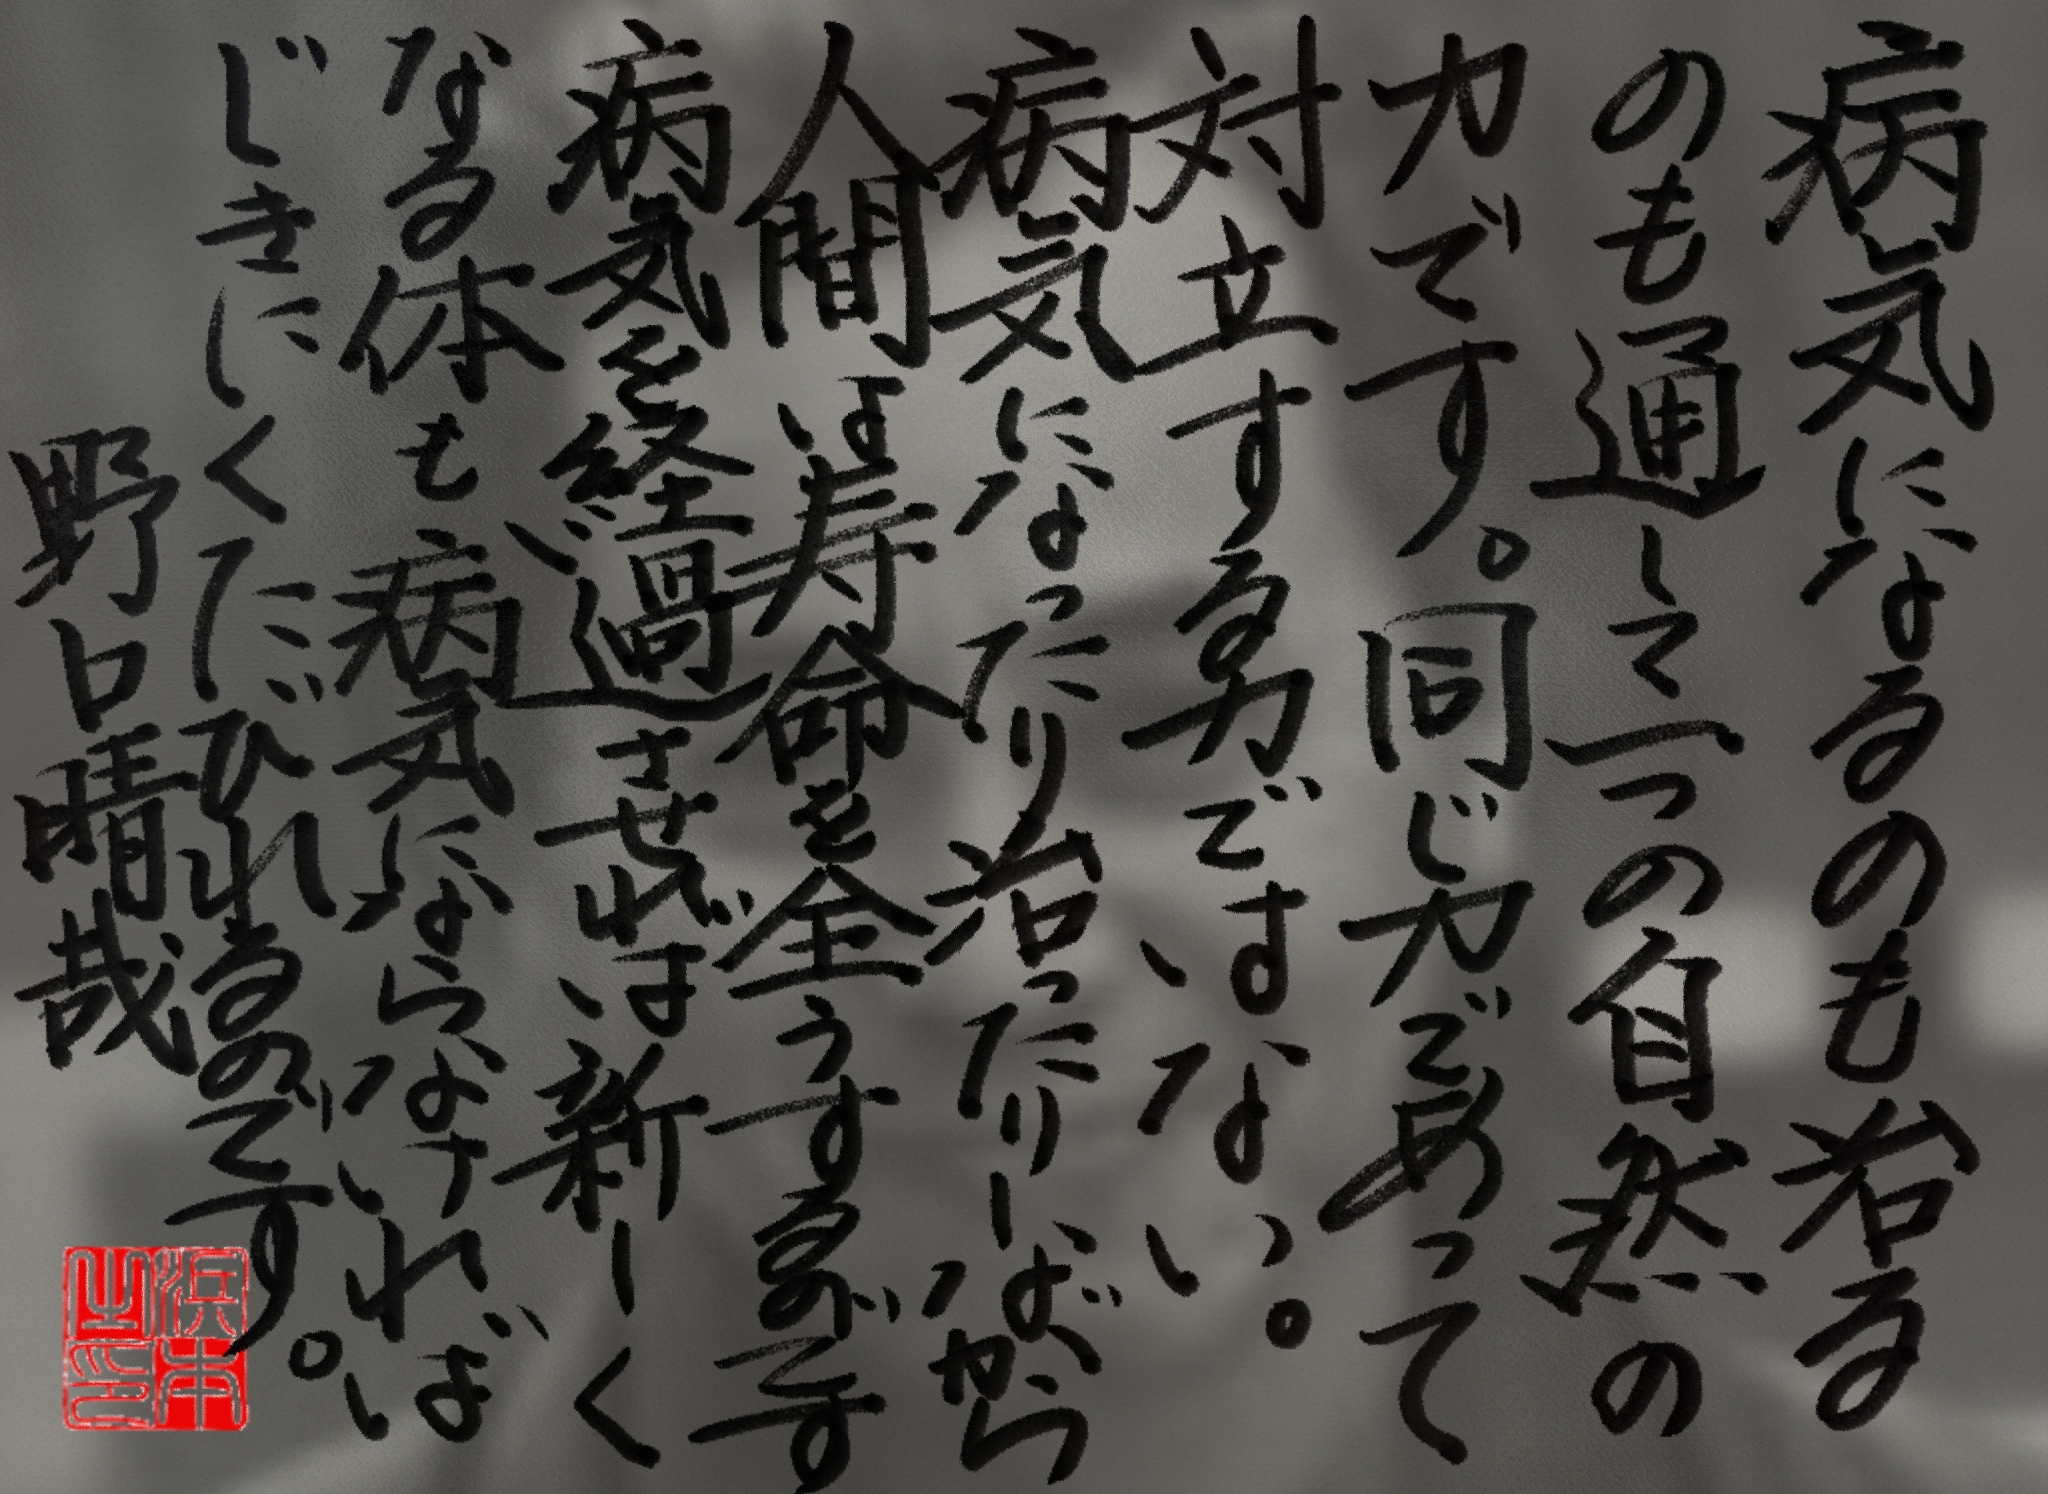 病気になるのも治る
のも通して一つの自然の
力です。同じ力であって
対立する力ではない。
病気になったり治ったりしながら
人間は寿命を全うするのです
病気を経過させれば、新しく
なる体も病気にならなければ、
じきにくたびれるのです。
野口晴哉
浜本
之印